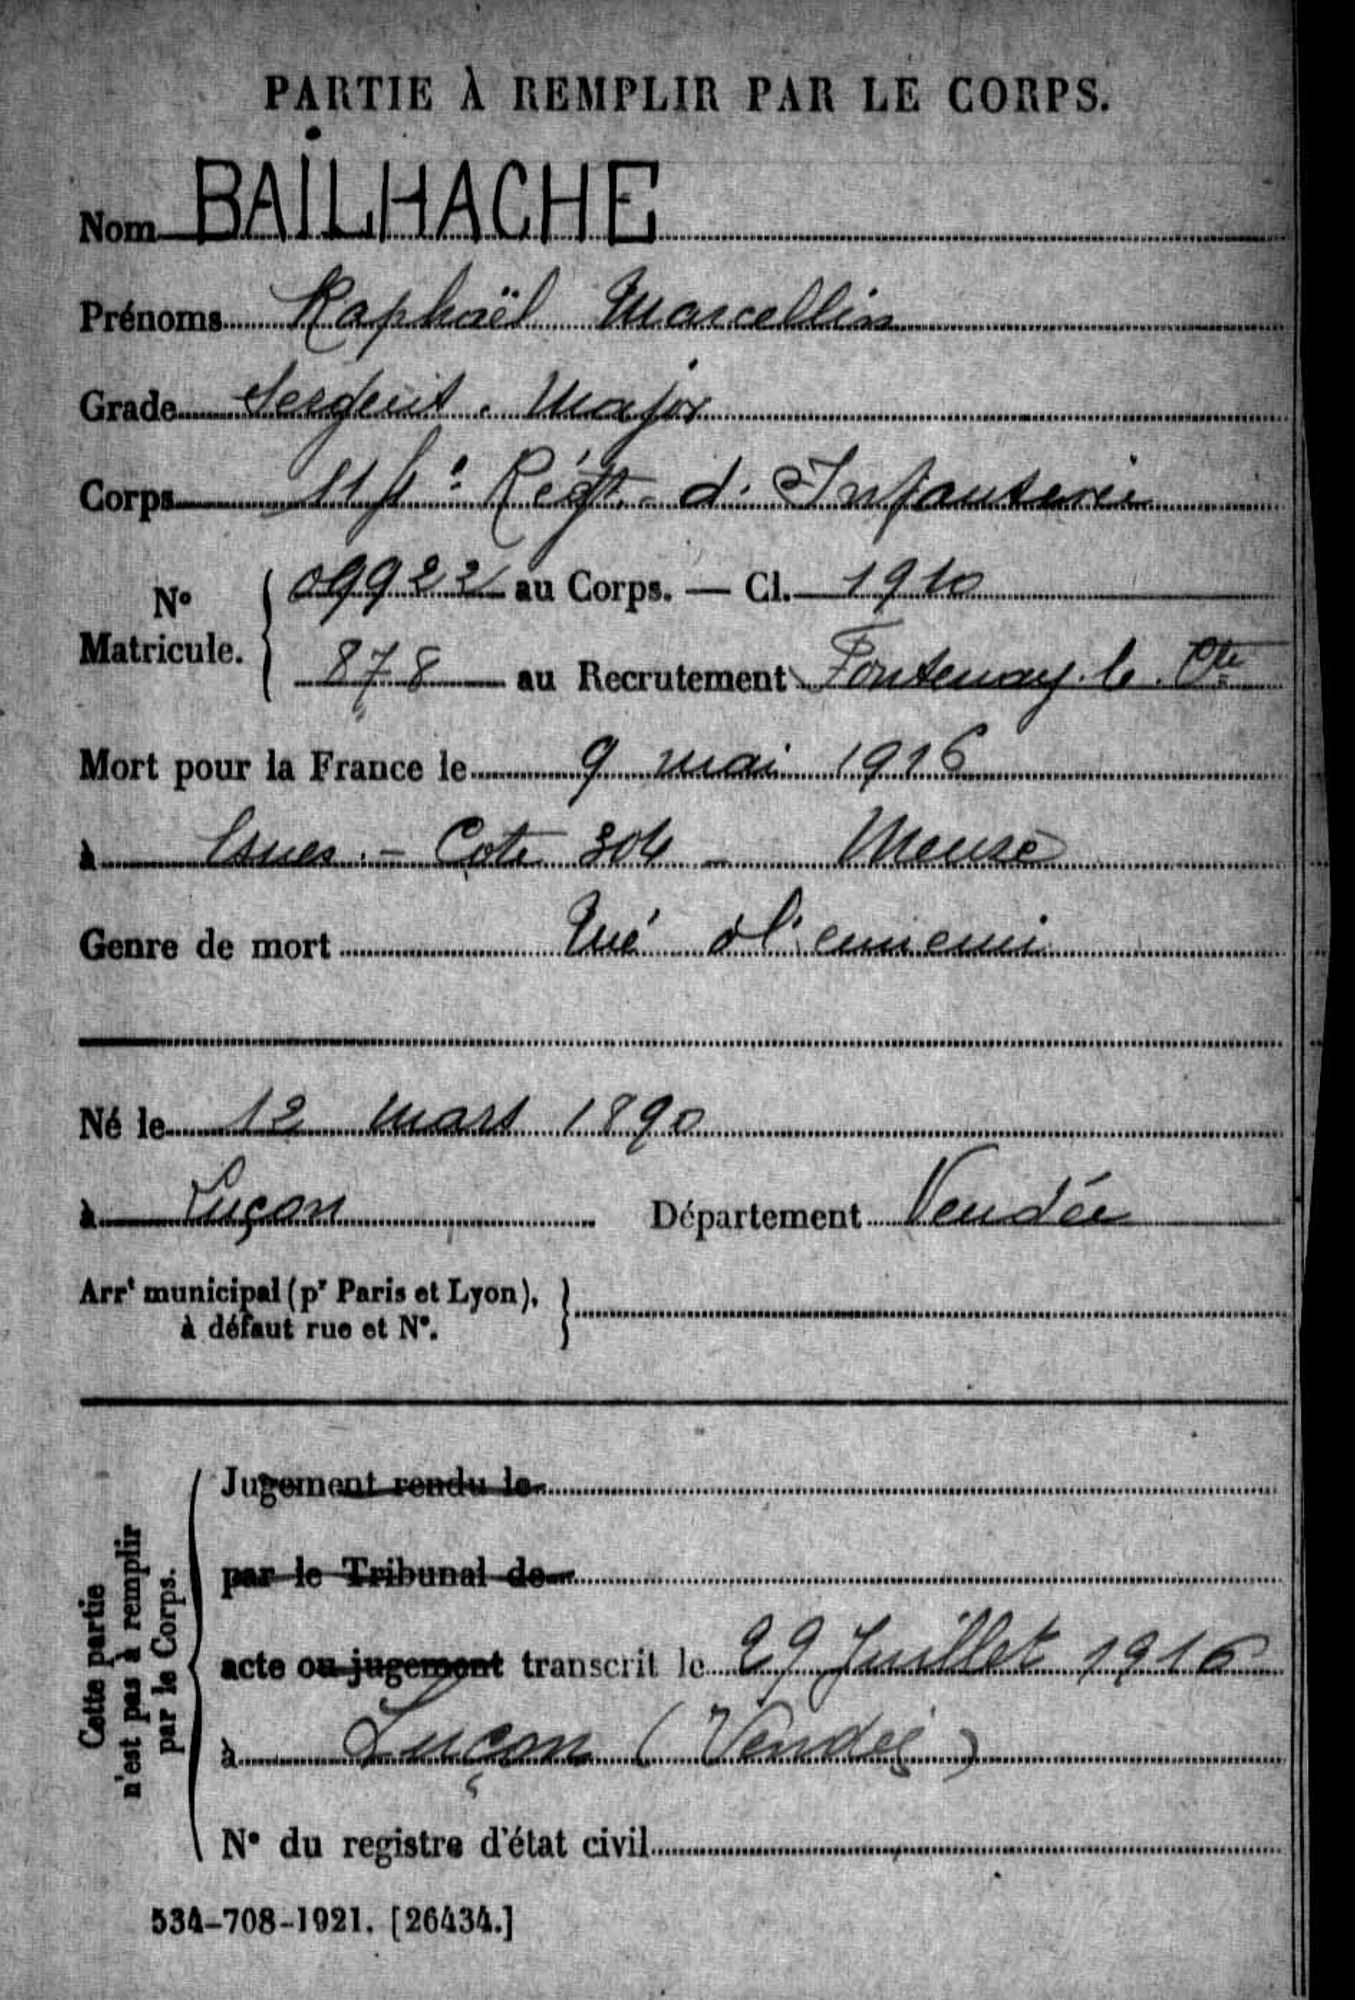 PARTIE À REMPLIR PAR LE CORPS.
Nom BAILHACHE
Prénoms Raphaël Marcellin
Grade Sergent. Major
Corps 114e Régt. d'Infanterie
No Matricule. { 09922 au Corps. — Cl. 1910
878 au Recrutement Fontenay. le. Cte
Mort pour la France le 9 mai 1916
à Esnes. – Cote 304 – Meuse
Genre de mort Tué à l'ennemi
Né le 12 mars 1890
à Luçon Département Vendée
Arrt municipal (pr Paris et Lyon), à défaut rue et N°. }
Cette partie n'est pas à remplir par le Corps.
Jugement rendu le
par le Tribunal de
acte ou jugement transcrit le 29 Juillet 1916
à Luçon (Vendée)
N° du registre d'état civil
534-708-1921. [26434.]